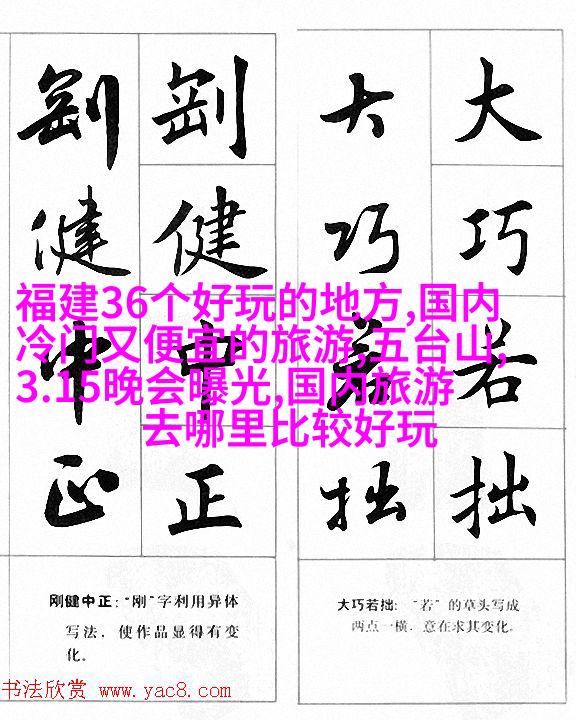 剛 剛 大 大
健 健 巧 巧
福建36个好玩的地方,国内
冷门又便宜的旅游,五台山,
3.15晚会曝光,国内旅游
去哪里比较好玩
中 中 若 若
正 正 拙 拙
刚健中正:“刚”字利用异体
写法,使作品显得有变
化。
大巧若拙:“若”的草头写成
两点一横,意在求其变化。
书法欣赏 www.yac8.com